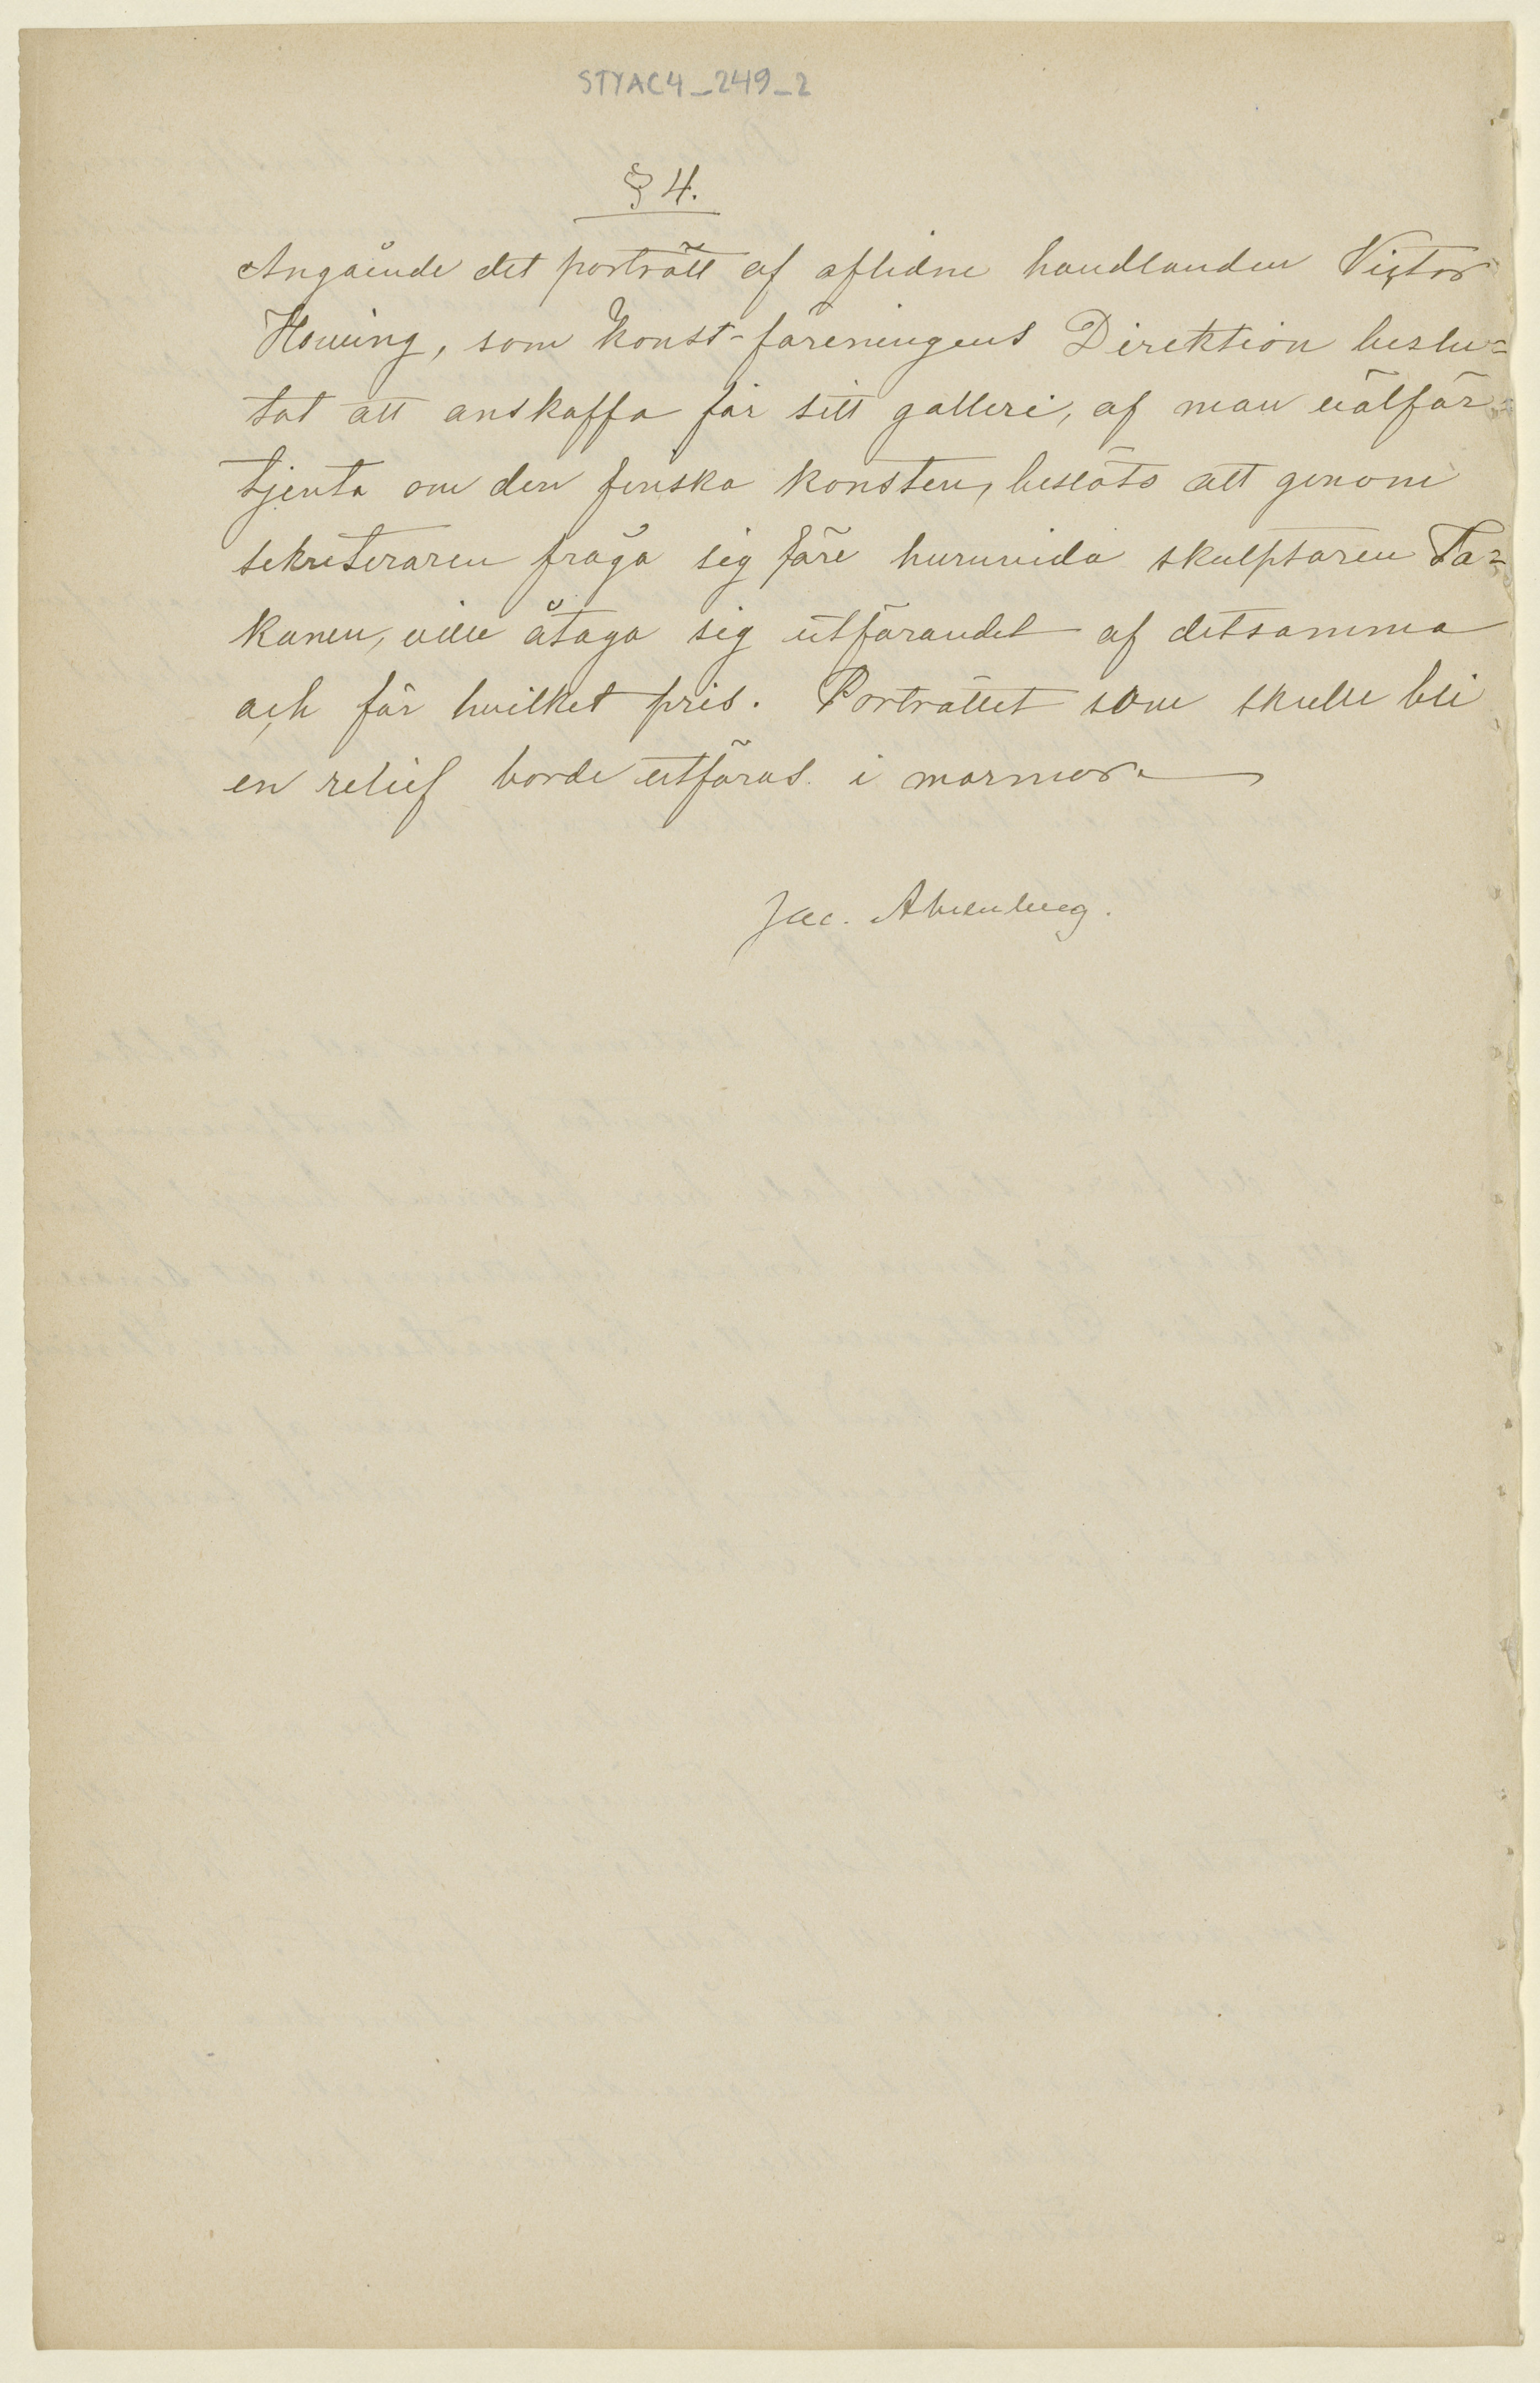 STYAC4_249_2
§ 4.
Angående det porträtt af aflidne handlanden Victor
Howing, som Konst-föreningens Direktion beslu=
tat att anskaffa för sitt galleri, af man välför=
tjenta om den finska konsten, beslöts att genom
sekreteraren fråga sig före huruvida skulptören Ta=
kanen, ville åtaga sig utförandet af detsamma
och för hvilket pris. Porträttet som skulle bli
en relief borde utföras i marmor.
Jac. Ahrenberg.